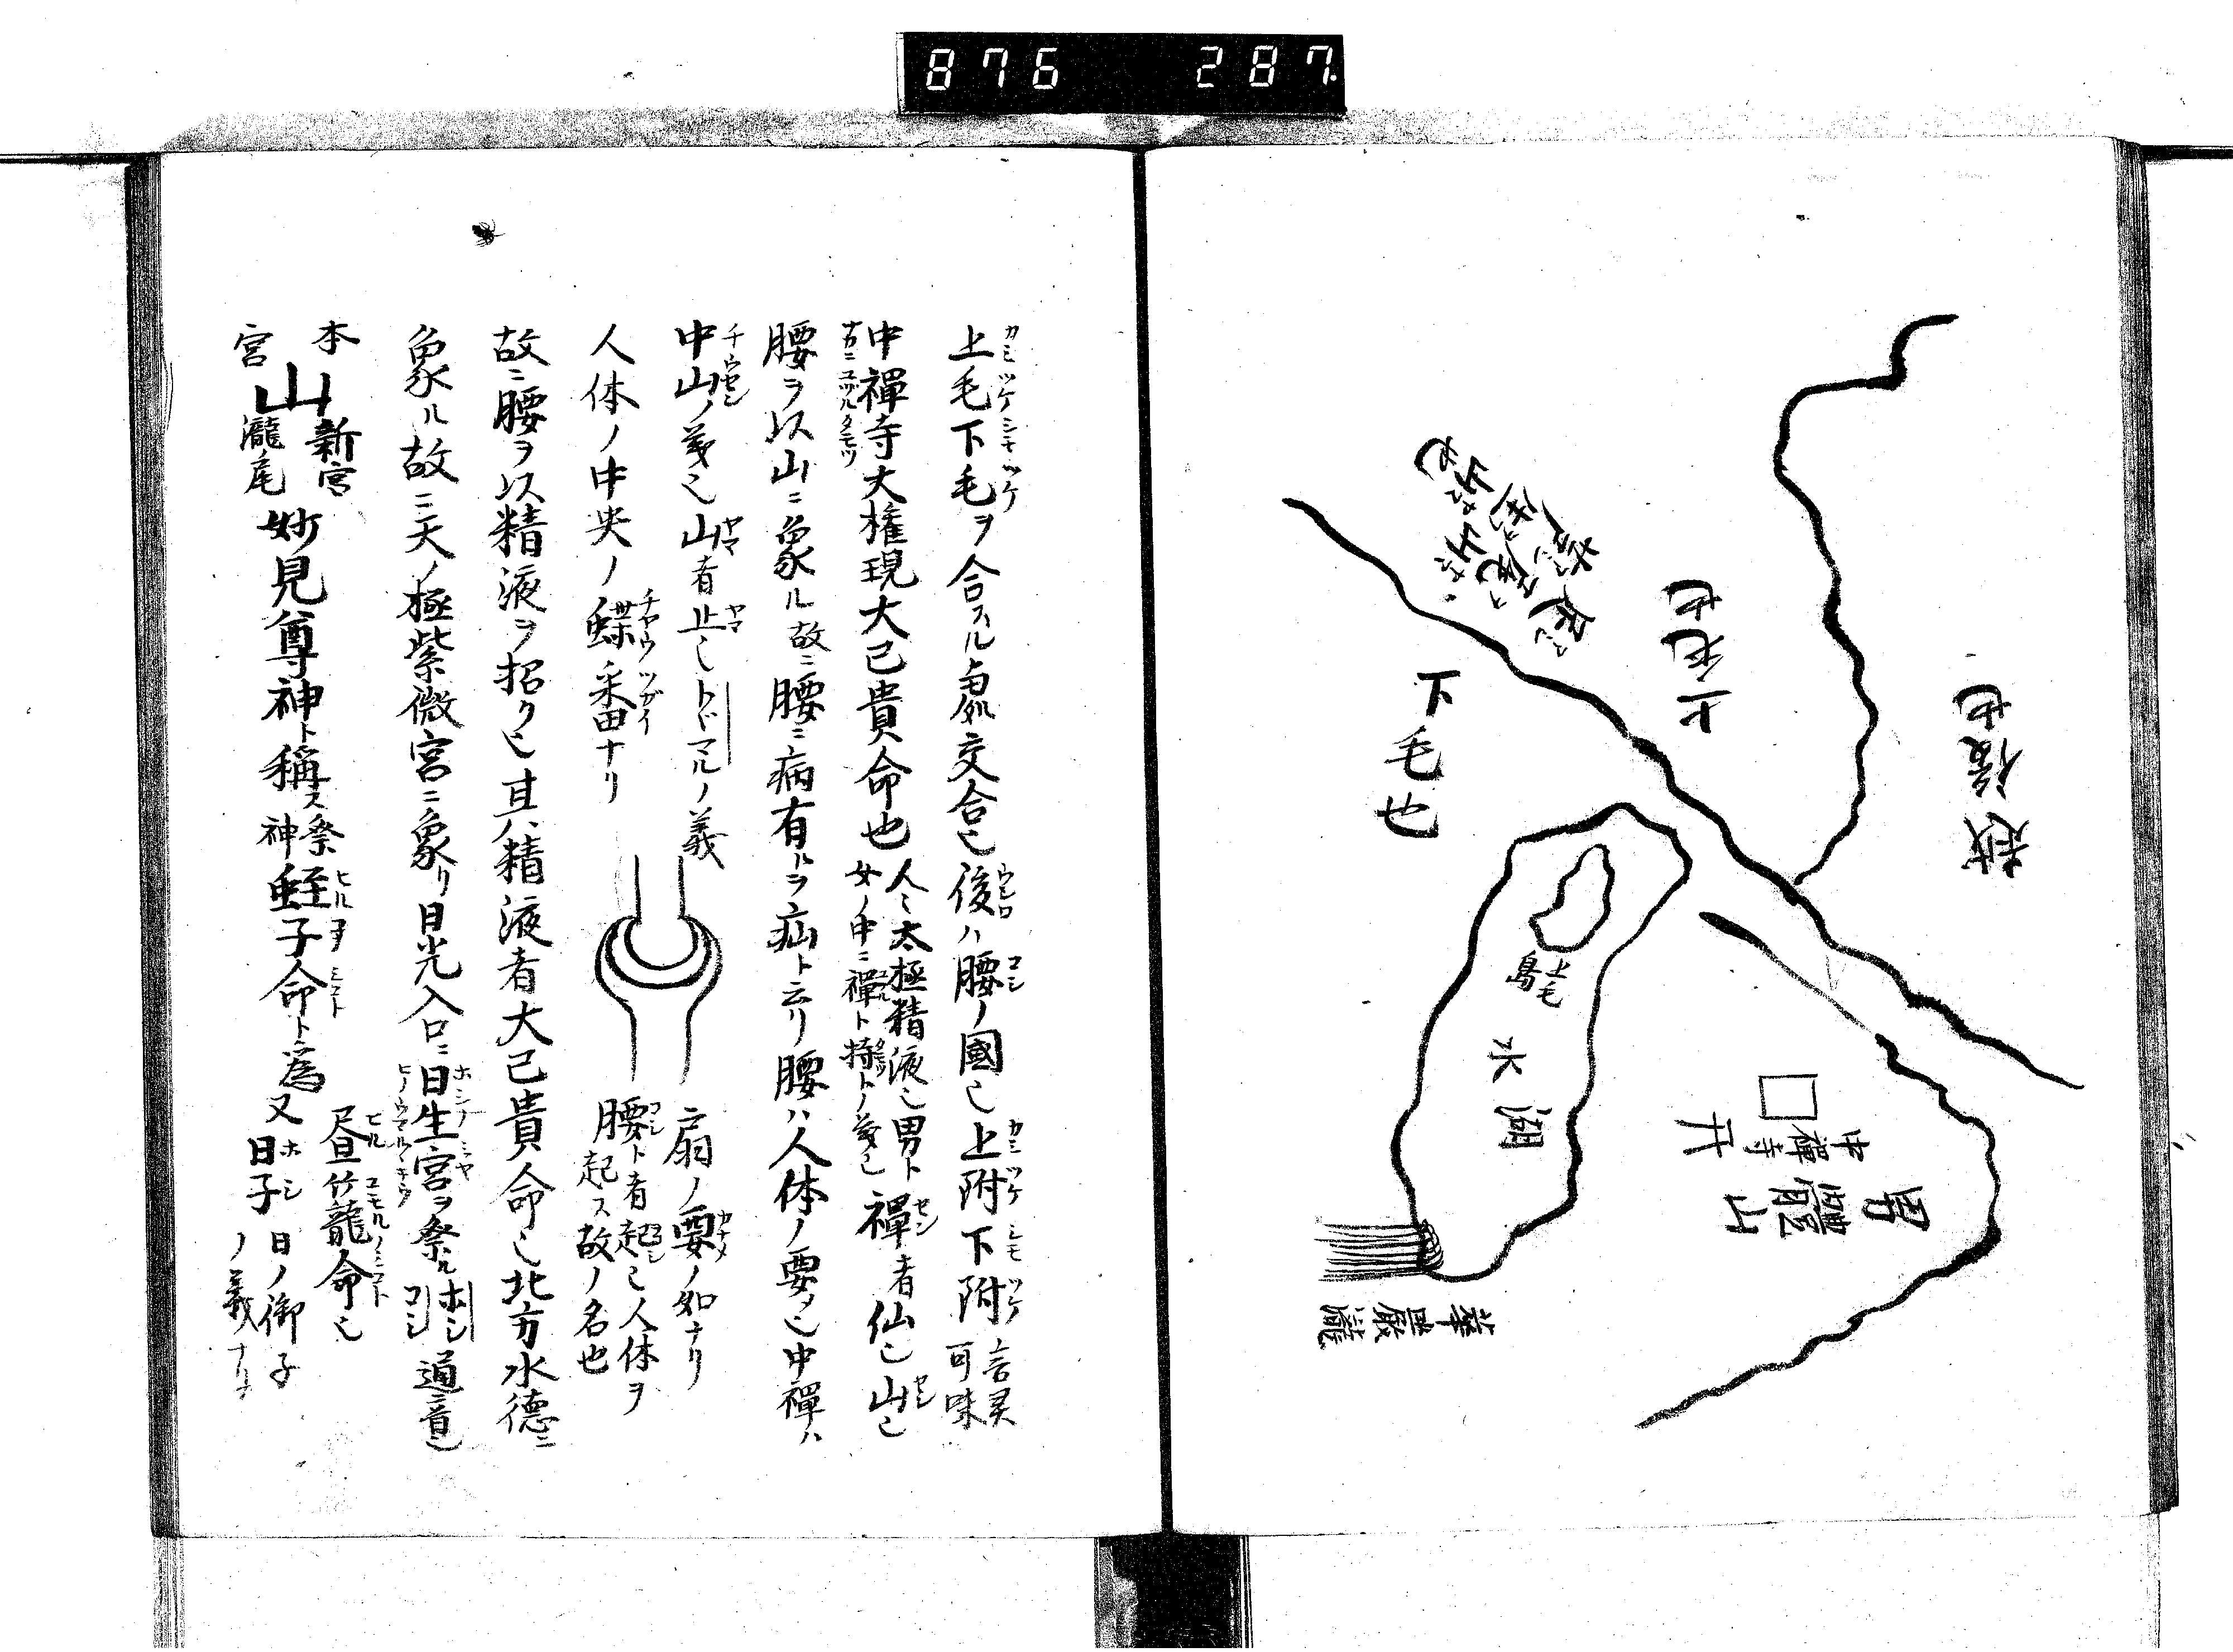 876 287
越後也
上毛也
下毛也
毛島
水湖
中禅寺
男體山
華嚴瀧
上毛下毛ヲ合スル處交合也後ハ腰ノ國也上附下附
言灵可味
中禪寺大権現大己貴命也
人ハ太極精液也男ト
女ノ中ニ禪ト持トノ義也
禪者仙也山也
腰ヲ以山ニ象ル故ニ腰ニ病有ルヲ疝ト云リ腰ハ人体ノ要也中禪ハ
中山ノ義也山者止也トドマルノ義
扇ノ要ノ如ナリ
人体ノ中央ノ蝶番ナリ
腰ト者起也人体ヲ
起ス故ノ名也
故ニ腰ヲ以精液ヲ招ク也其精液者大己貴命也北方水德ニ
象ル故ニ天ノ極紫微宮ニ象リ日光入口ニ日生宮ヲ祭ル
ホシ
コシ
通音也
本宮
山
新宮
瀧尾
妙見尊神ト稱ス
祭神
蛭子命ト為又
昼竹籠命也
日子
日ノ御子
ノ義ナリ